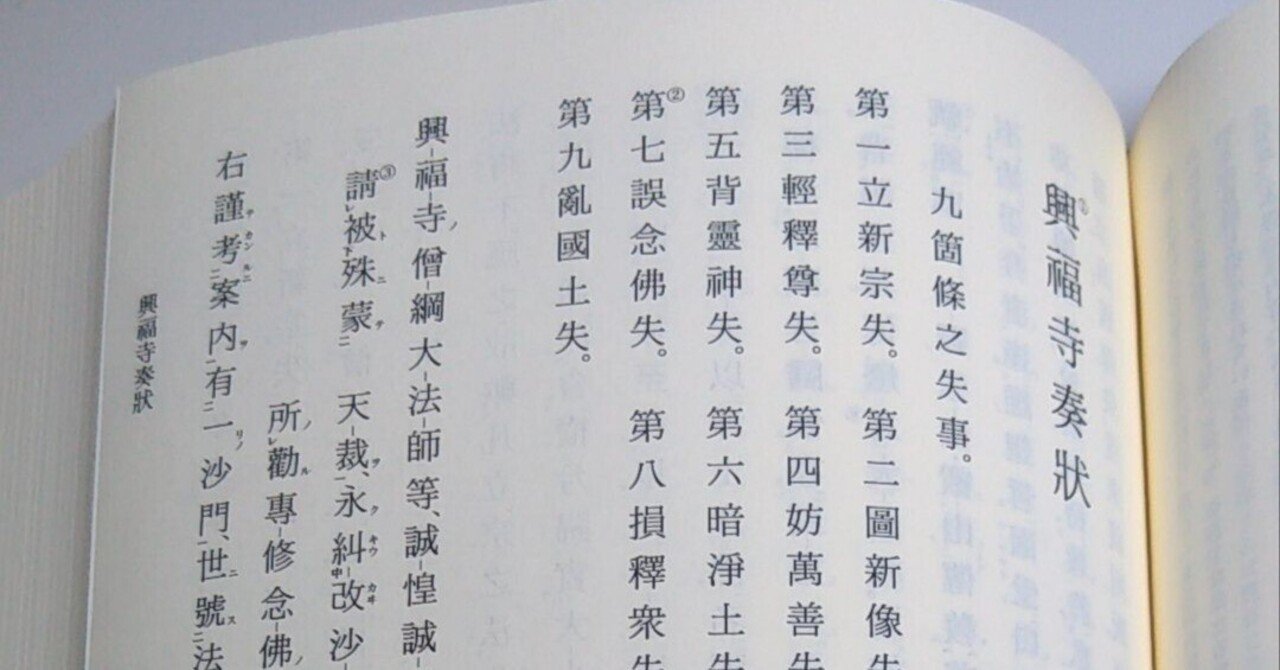 興①福寺奏狀
九箇條之失事。
第一立新宗失。 第二圖新像失
第三輕釋尊失。 第四妨萬善失
第五背靈神失。 第六暗淨土失
第②七誤念佛失。 第八損釋衆失
第九亂國土失。
興福寺僧綱大法師等、誠惶誠
請③被殊蒙 天裁、永糾改沙
所勸專修念佛
右謹考案内有一沙門、世號法
興福寺奏狀